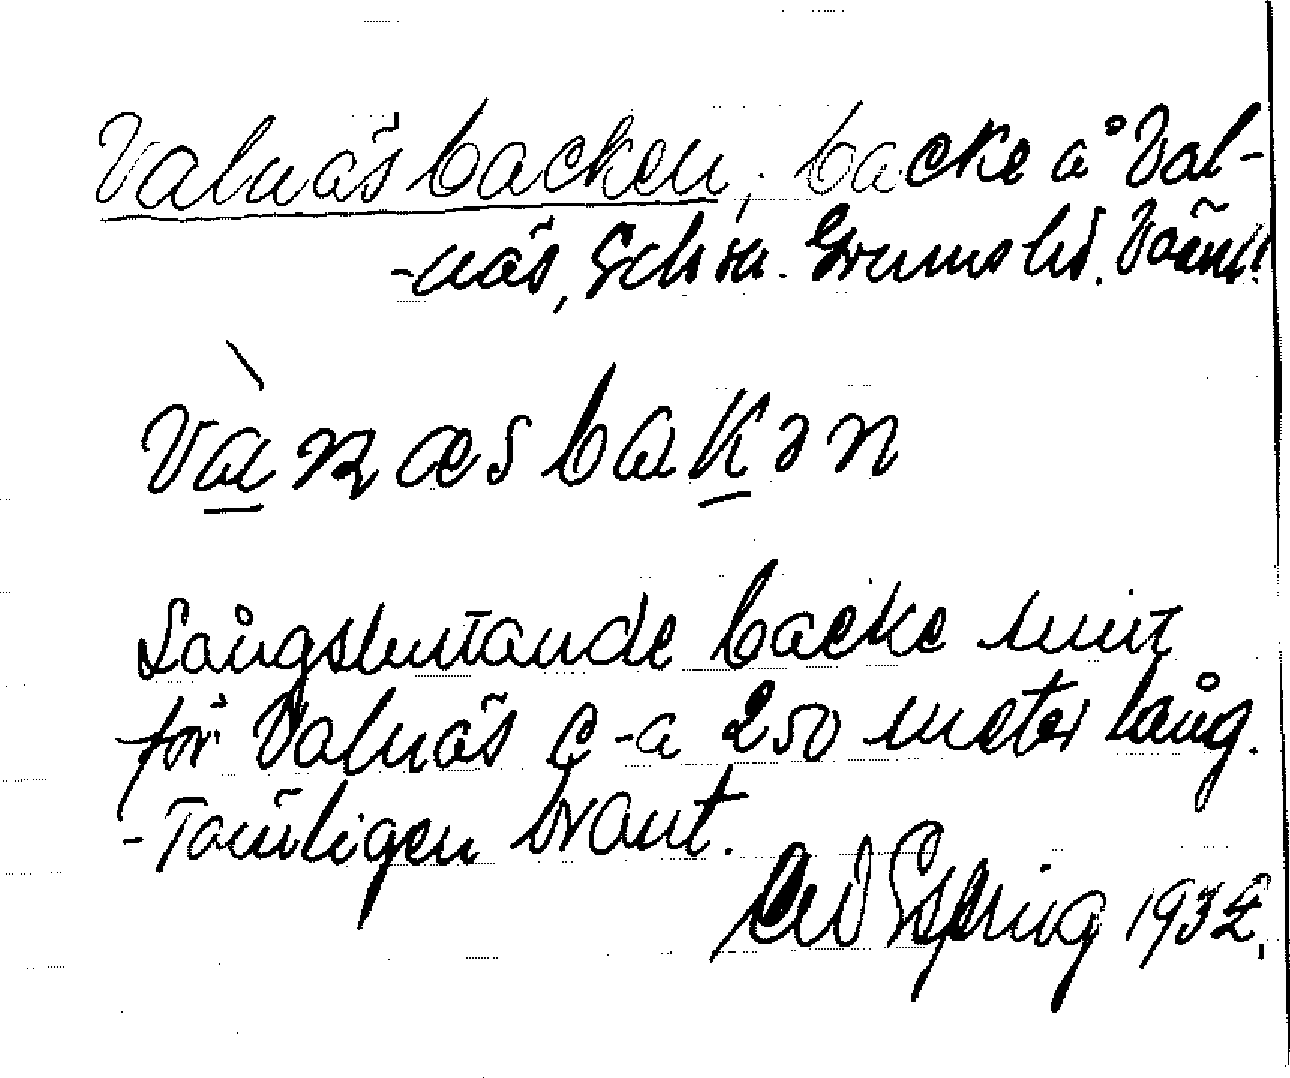 Valnäsbacken, backe å Val-
-näs, Grums hd. Värml.
Vànæsbakən
Långsluttande backe mitt
för Valnäs c-a 250 meter lång.
-Tämligen brant.
1932.